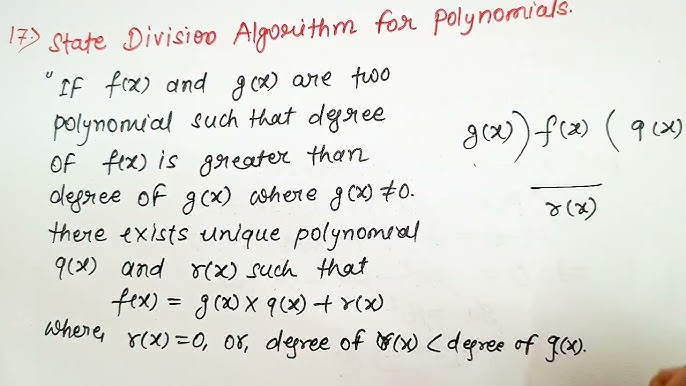 17.) State Division Algorithm for Polynomials.
"If f(x) and g(x) are two
polynomial such that degree
of f(x) is greater than
degree of g(x) where g(x) ≠ 0.
there exists unique polynomial
q(x) and r(x) such that
f(x) = g(x) × q(x) + r(x)
where, r(x) = 0, or, degree of r(x) < degree of g(x).
g(x) ) f(x) ( q(x)
r(x)